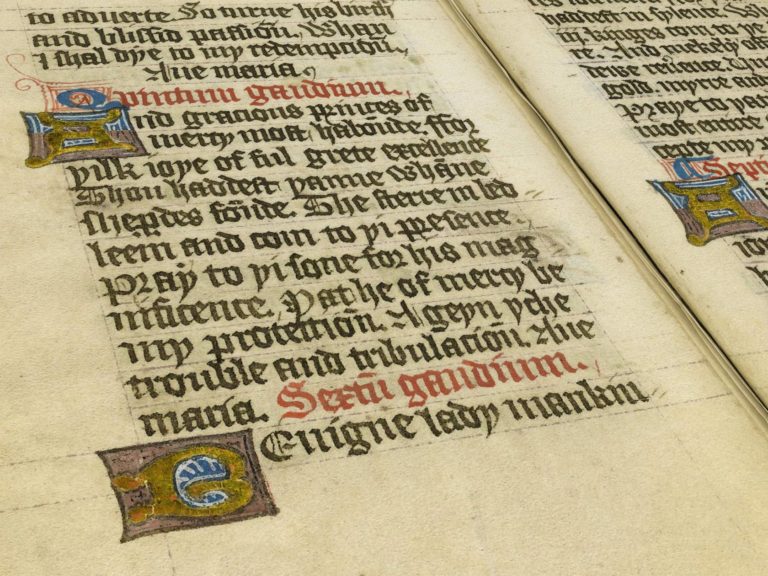 to aduerte. So turne his birth
and blissid passiōn. Whan
I shal dye to my redempciōn.
Aue maria.
Quintum gaudium.
And gracious princes of
mercy most habōnde. ffor
yilk ioye of ful grete excellence
Thou haddest yanne Whāne
shepdes fōnde. The sterre in bed
leem and com to yi presence.
Pray to yi sone for his mag
nificence. Yat he of mercy be
my protecciōn. Ageyn yche
trouble and tribulaciōn. Aue
maria. Sextū gaudium.
Benigne lady mankin
haddest in sylence. Whan
iii kinges com to ye
re. And mekely of
gold. myrre
Praye to
most entere
cente my
Septi